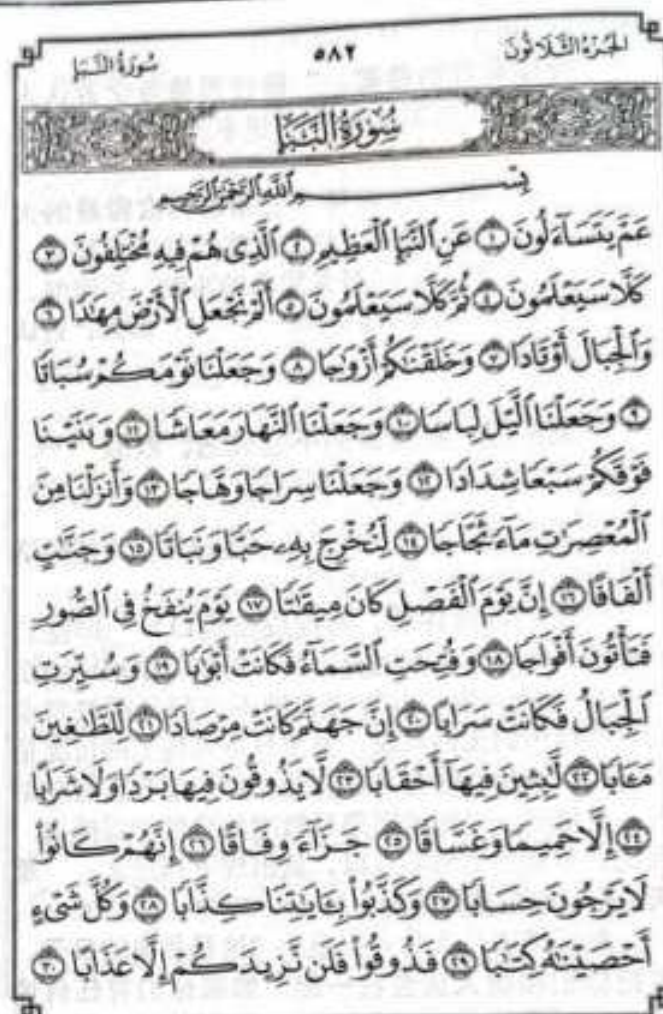 الجزء الثلاثون ٥٨٢ سورة النبإ
سورة النبإ
بسم الله الرحمن الرحيم
عَمَّ يَتَسَآءَلُونَ ١ عَنِ ٱلنَّبَإِ ٱلْعَظِيمِ ٢ ٱلَّذِى هُمْ فِيهِ مُخْتَلِفُونَ ٣
كَلَّا سَيَعْلَمُونَ ٤ ثُمَّ كَلَّا سَيَعْلَمُونَ ٥ أَلَمْ نَجْعَلِ ٱلْأَرْضَ مِهَٰدًا ٦
وَٱلْجِبَالَ أَوْتَادًا ٧ وَخَلَقْنَٰكُمْ أَزْوَٰجًا ٨ وَجَعَلْنَا نَوْمَكُمْ سُبَاتًا
٩ وَجَعَلْنَا ٱلَّيْلَ لِبَاسًا ١٠ وَجَعَلْنَا ٱلنَّهَارَ مَعَاشًا ١١ وَبَنَيْنَا
فَوْقَكُمْ سَبْعًا شِدَادًا ١٢ وَجَعَلْنَا سِرَاجًا وَهَّاجًا ١٣ وَأَنزَلْنَا مِنَ
ٱلْمُعْصِرَٰتِ مَآءً ثَجَّاجًا ١٤ لِّنُخْرِجَ بِهِۦ حَبًّا وَنَبَاتًا ١٥ وَجَنَّٰتٍ
أَلْفَافًا ١٦ إِنَّ يَوْمَ ٱلْفَصْلِ كَانَ مِيقَٰتًا ١٧ يَوْمَ يُنفَخُ فِى ٱلصُّورِ
فَتَأْتُونَ أَفْوَاجًا ١٨ وَفُتِحَتِ ٱلسَّمَآءُ فَكَانَتْ أَبْوَٰبًا ١٩ وَسُيِّرَتِ
ٱلْجِبَالُ فَكَانَتْ سَرَابًا ٢٠ إِنَّ جَهَنَّمَ كَانَتْ مِرْصَادًا ٢١ لِّلطَّٰغِينَ
مَـَٔابًا ٢٢ لَّٰبِثِينَ فِيهَآ أَحْقَابًا ٢٣ لَّا يَذُوقُونَ فِيهَا بَرْدًا وَلَا شَرَابًا
٢٤ إِلَّا حَمِيمًا وَغَسَّاقًا ٢٥ جَزَآءً وِفَاقًا ٢٦ إِنَّهُمْ كَانُوا۟
لَا يَرْجُونَ حِسَابًا ٢٧ وَكَذَّبُوا۟ بِـَٔايَٰتِنَا كِذَّابًا ٢٨ وَكُلَّ شَىْءٍ
أَحْصَيْنَٰهُ كِتَٰبًا ٢٩ فَذُوقُوا۟ فَلَن نَّزِيدَكُمْ إِلَّا عَذَابًا ٣٠